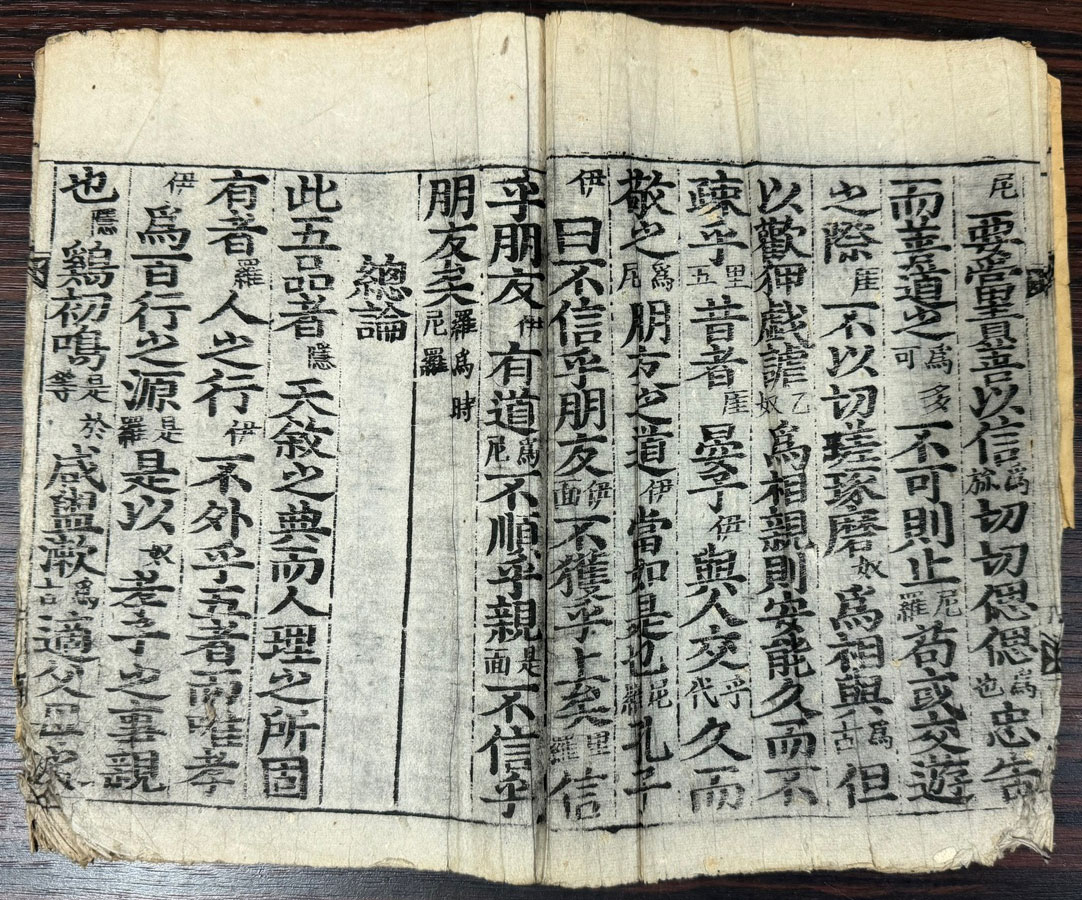 尼要當責善以信爲旀切切偲偲爲也忠告
而善道之爲多可不可則止尼羅苟或交遊
之際厓不以切磋琢磨奴爲相與爲古但
以歡狎戱謔乙奴爲相親則安能久而不
疎乎里五昔者厓晏子伊與人交乎代久而
敬之爲尼朋友之道伊當如是也尼羅孔子
伊曰不信乎朋友伊面不獲乎上矣里羅信
乎朋友伊有道爲尼不順乎親是面不信乎
朋友矣羅爲時尼羅
總論
此五品者隱天敘之典而人理之所固
有者羅人之行伊不外乎五者而唯孝
伊爲百行之源是羅是以奴孝子之事親
也隱鷄初鳴是於等咸盥漱爲古適父母